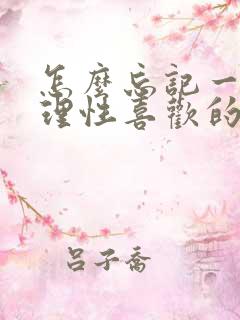 怎麼忘記一
理性喜歡的
呂子喬